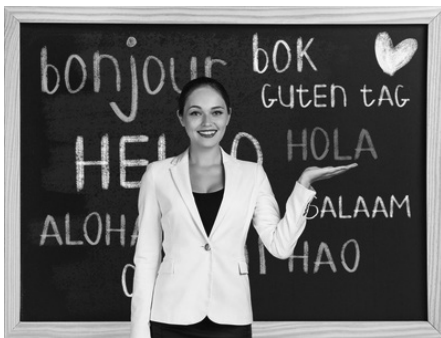 bonjour bok
GUteN tAG
HELLO HOLA
SALAAM
ALOHA HAO